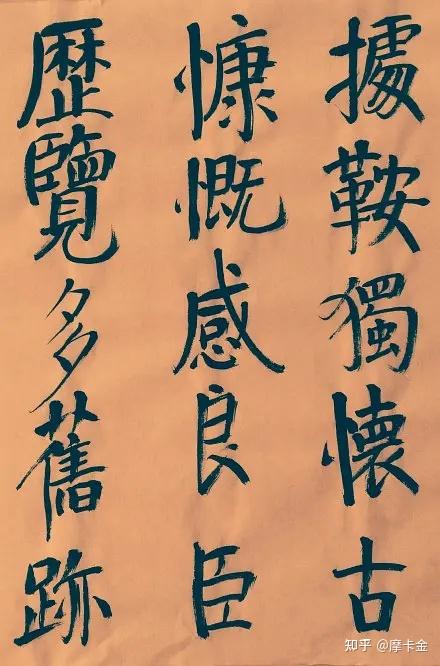 據鞍獨懷古
慷慨感良臣
歷覽多舊跡
知乎 @摩卡金